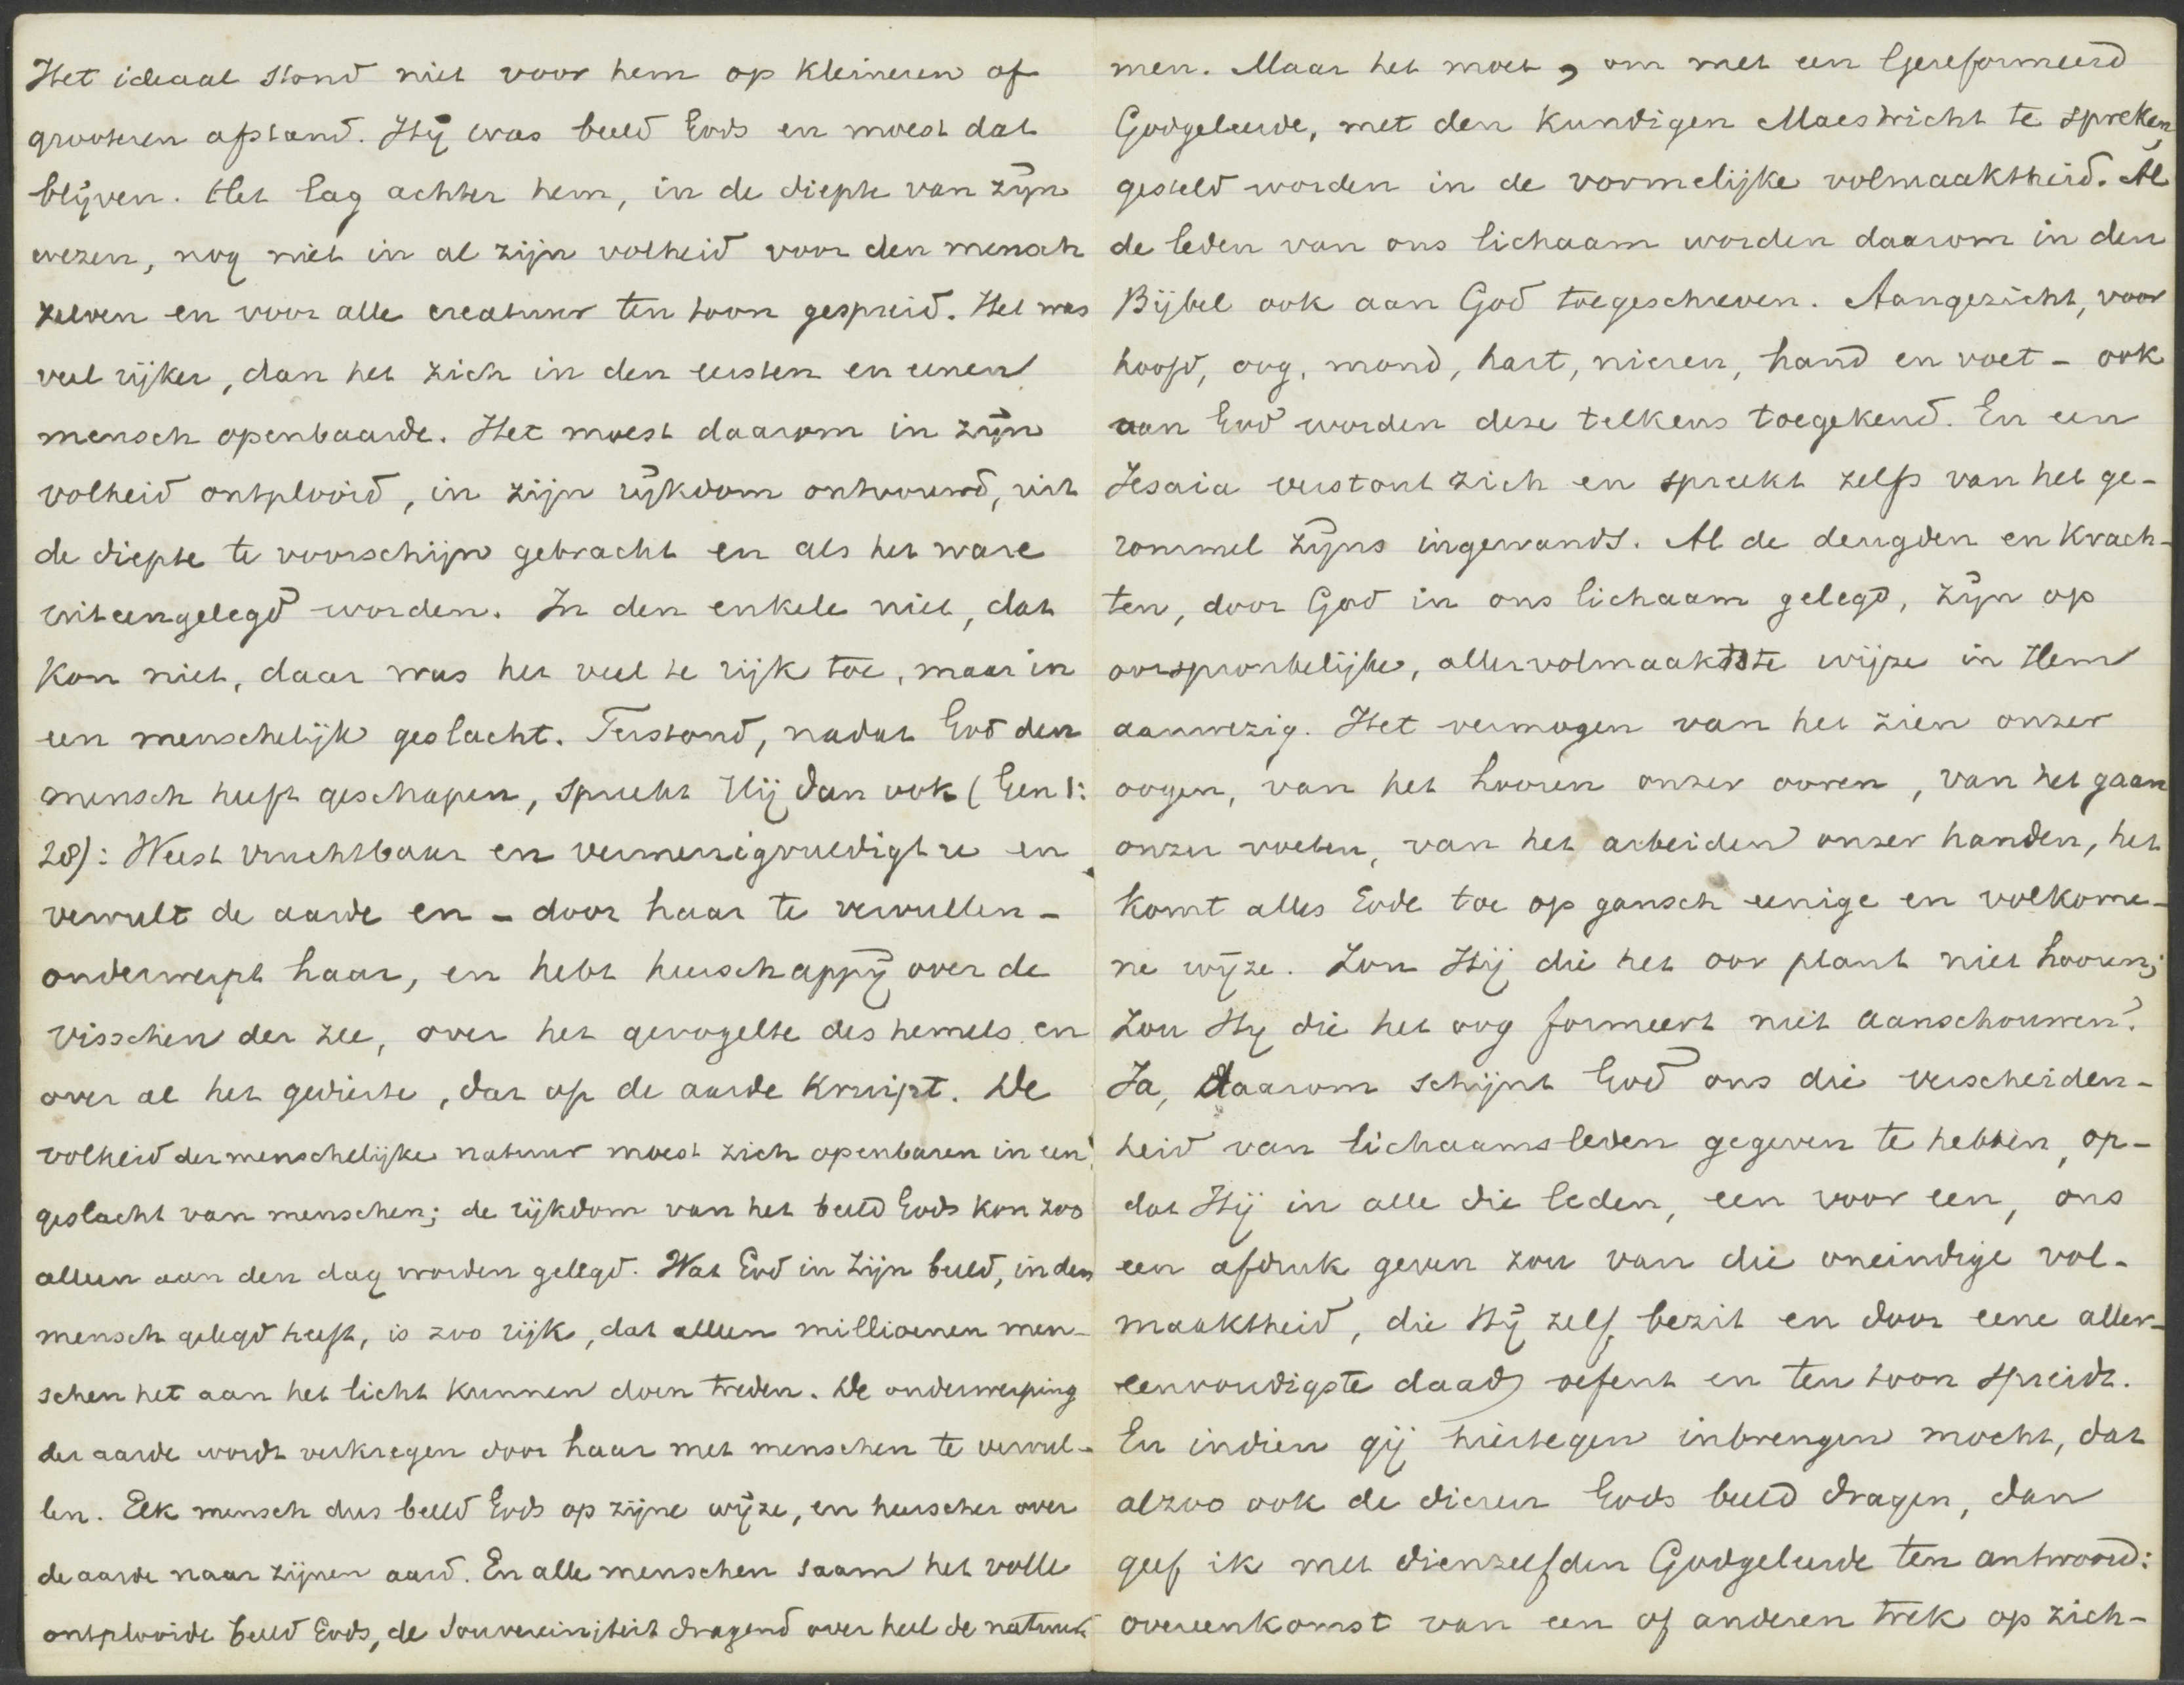 Het ideaal stond niet voor hem op kleineren of
grooteren afstand. Hij was beeld Gods en moest dat
blijven. Het lag achter hem, in de diepte van zijn
wezen, nog niet in al zijn volheid voor den mensch
zelven en voor alle creatuur ten toon gespreid. Het was
veel rijker, dan het zich in den eersten en eenen
mensch openbaarde. Het moest daarom in zijn
volheid ontplooid, in zijn rijkdom ontvouwd, uit
de diepte te voorschijn gebracht en als het ware
uiteengelegd worden. In den enkele niet, dat
kon niet, daar was het veel te rijk toe, maar in
een menschelijk geslacht. Terstond, nadat God den
mensch heeft geschapen, spreekt Hij dan ook (Gen 1:
28): Weest vruchtbaar en vermenigvuldigt u en
vervult de aarde en - door haar te vervullen -
onderwerpt haar, en hebt heerschappij over de
visschen der zee, over het gevogelte des hemels en
over al het gedierte, dat op de aarde kruipt. De
volheid der menschelijke natuur moest zich openbaren in een
geslacht van menschen; de rijkdom van het beeld Gods kon zoo
alleen aan den dag worden gelegd. Wat God in zijn beeld, in den
mensch gelegd heeft, is zoo rijk, dat alleen millioenen men-
schen het aan het licht kunnen doen treden. De onderwerping
der aarde wordt verkregen door haar met menschen te vervul-
len. Elk mensch dus beeld Gods op zijne wijze, en heerscher over
de aarde naar zijnen aard. En alle menschen saam het volle
ontplooide beeld Gods, de souvereiniteit dragend over heel de natuur.
men. Maar het moet, om met een Gereformeerd
Godgeleerde, met den kundigen Maestricht te spreken,
gesteld worden in de vormelijke volmaaktheid. Al
de leden van ons lichaam worden daarom in den
Bijbel ook aan God toegeschreven. Aangezicht, voor
hoofd, oog, mond, hart, nieren, hand en voet - ook
aan God worden deze telkens toegekend. En een
Jesaia verstout zich en spreekt zelfs van het ge-
rommel zijns ingewands. Al de deugden en krach-
ten, door God in ons lichaam gelegd, zijn op
oorspronkelijke, allervolmaaktste wijze in Hem
aanwezig. Het vermogen van het zien onzer
oogen, van het hooren onzer ooren, van het gaan
onzer voeten, van het arbeiden onzer handen, het
komt alles Gode toe op gansch eenige en volkome-
ne wijze. Zou Hij die het oor plant niet hooren;
zou Hij die het oog formeert niet aanschouwen?
Ja, daarom schijnt God ons die verscheiden-
heid van lichaamsleden gegeven te hebben, op-
dat Hij in alle die leden, een voor een, ons
een afdruk geven zou van die oneindige vol-
maaktheid, die Hij zelf bezit en door eene aller-
eenvoudigste daad oefent en ten toon spreidt.
En indien gij hiertegen inbrengen mocht, dat
alzoo ook de dieren Gods beeld dragen, dan
geef ik met dienzelfden Godgeleerde ten antwoord:
overeenkomst van een of anderen trek op zich-